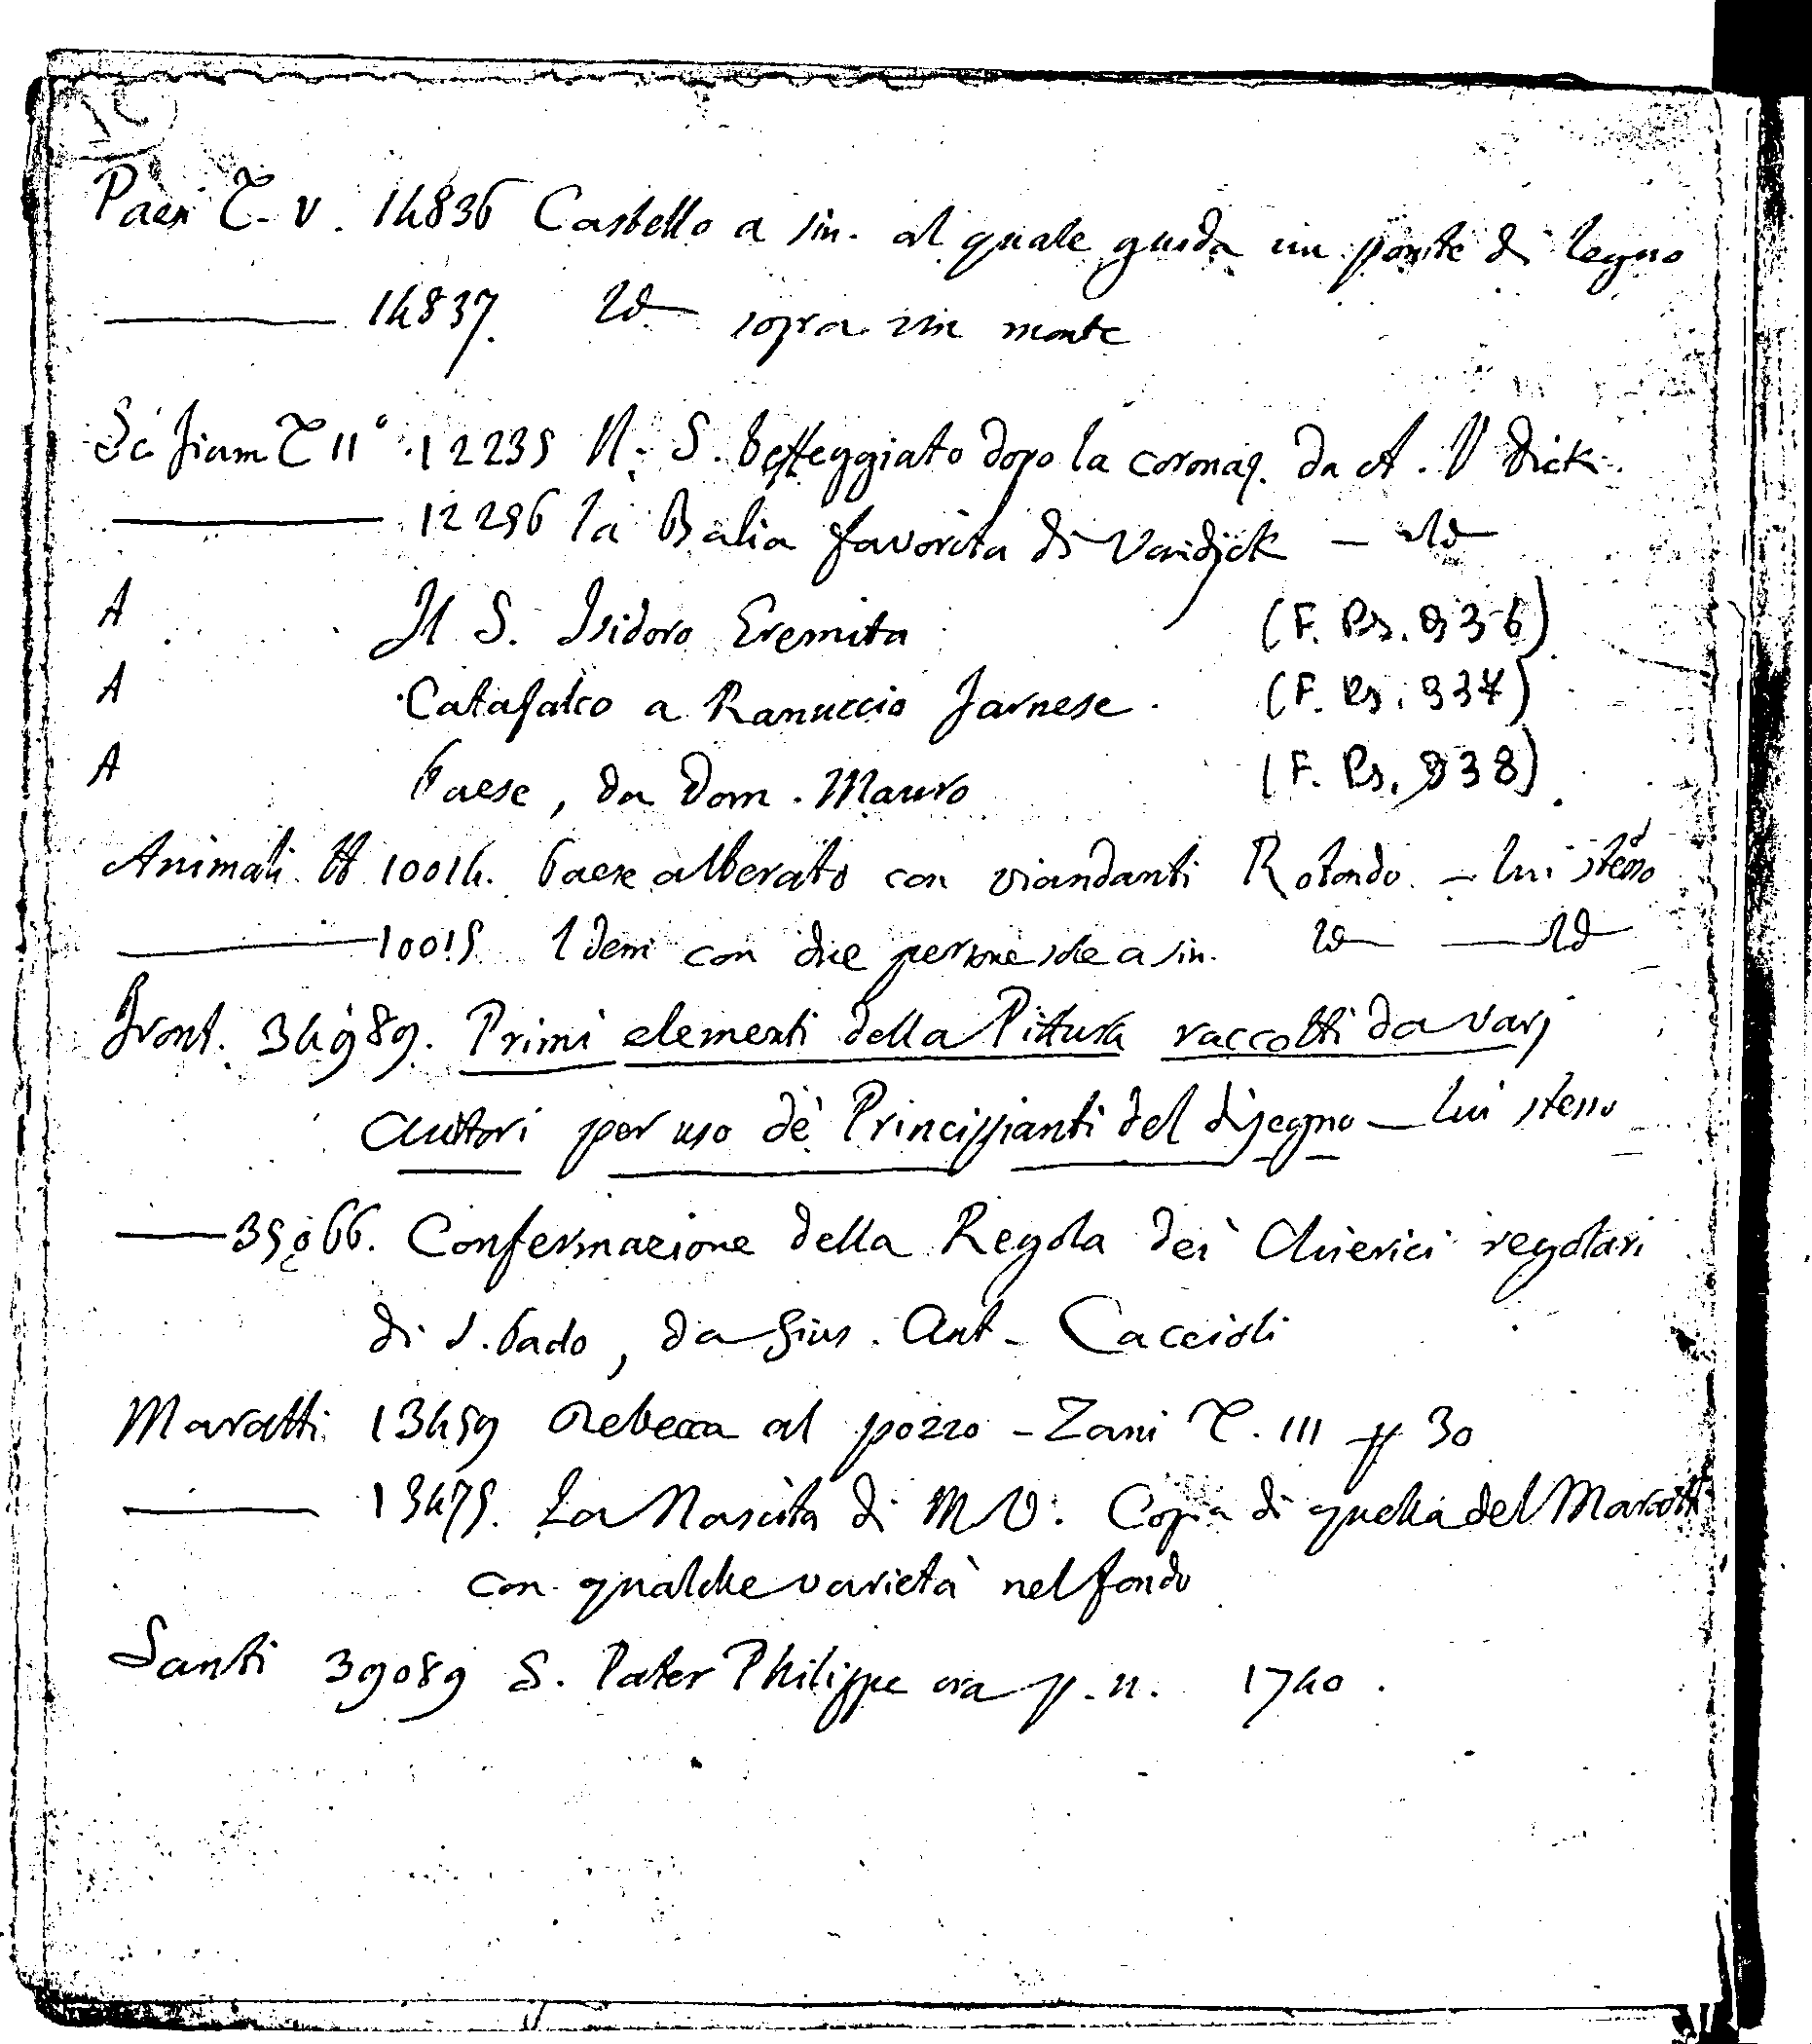 Paesi T. V. 14836 Castello a sin. al quale guida un ponte di legno
14837. Id sopra un monte
Sc. fiam T II° 12235 N. S. beffeggiato dopo la coronaz. da A. V Dick.
12296 la Balia favorita di Vandijck — Id
A Il S. Isidoro Eremita (F. Ps. 936)
A Catafalco a Ranuccio Farnese. (F. Ps. 937)
A Paese, da Dom. Mauro (F. Ps. 938)
Animali 10014. Paese alberato con viandanti Rotondo. — lui stesso
10015 Idem con due persone sole a sin. Id — Id
Front. 34989. Primi elementi della Pittura raccolti da varj
autori per uso de' Principianti del disegno — lui stesso
35066. Confermazione della Regola dei Chierici regolari
di S. Paolo, da Gius. Ant. Caccioli
Maratti 13459 Rebecca al pozzo - Zani T. III p 30
13475. La Nascita di M V. Copia di quella del Maratti
con qualche varietà nel fondo
Santi 39089 S. Pater Philippe ora p. n. 1740.